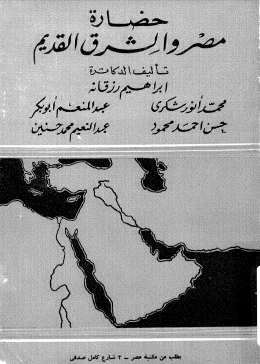 حضارة
مصر والشرق القديم
تأليف الدكاترة
ابراهيم رزقانه
محمد أنور شكرى عبد المنعم أبو بكر
حسن احمد محمود عبد النعيم محمد حسنين
يطلب من مكتبة مصر - ٣ شارع كامل صدقى